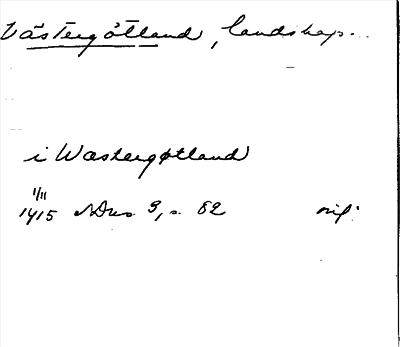 Västergötland, landskap.
i Wæstergøtland
1/11
1415 NDns. 3, s. 82 orig.